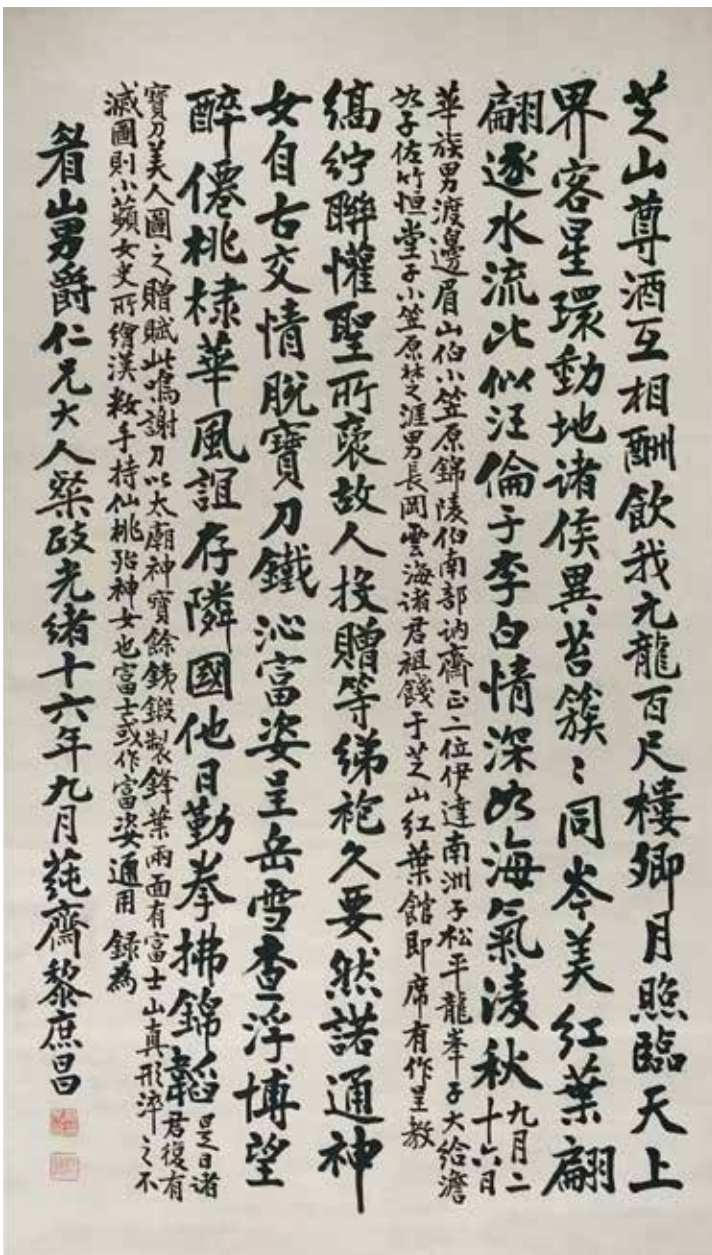 芝山尊酒互相酬飲我元龍百尺樓卿月照臨天上
界客星環動地諸侯異苔簇〻同岑美紅葉翩
翩逐水流比似汪倫于李白情深如海氣淩秋
九月二
十六日
華族男渡邊眉山伯小笠原錦陵伯南部訥齋正二位伊達南洲子松平龍峯子大給澹
如子佐竹恒堂子小笠原涯男長岡雲海諸君祖餞于芝山紅葉館即席有作呈教
縞紵聯懽聖所褒故人投贈等綈袍久要然諾通神
女自古交情脫寶刀鐵沁富姿呈岳雪查浮博望
醉僊桃棣華風誼存隣國他日勤拳拂錦韜
是日諸
君復有
寶刀美人圖之贈賦此鳴謝刀以太廟神寶餘銕鍛製鋒葉兩面有富士山真形淬之不
滅圖則小蘋女史所繪漢粧手持仙桃殆神女也富士或作富姿通用 録為
眉山男爵仁兄大人粲政光緒十六年九月蒓齋黎庶昌